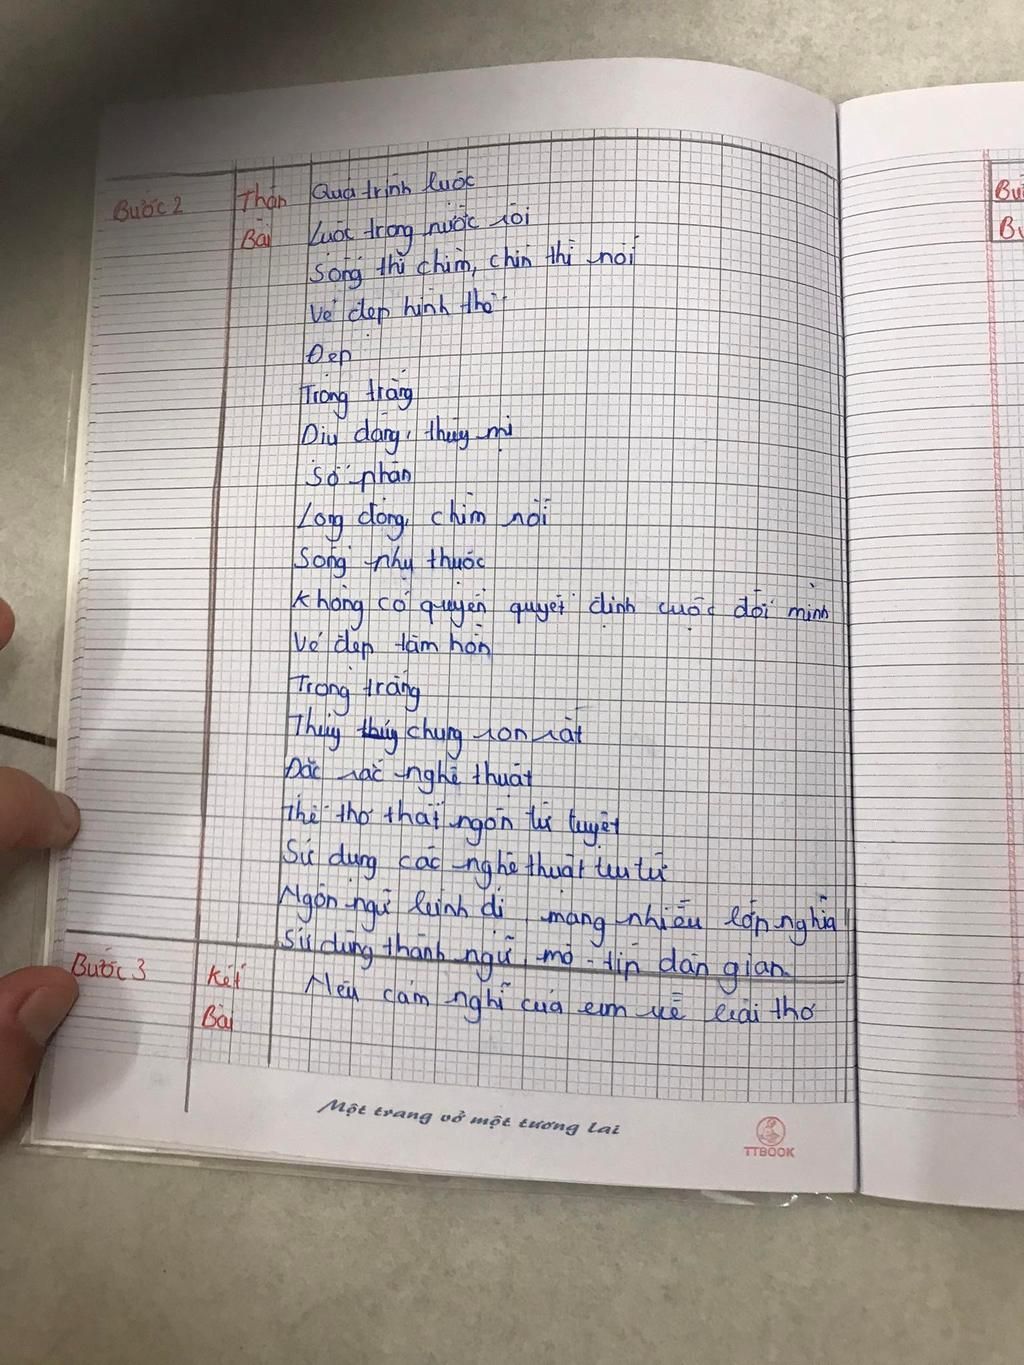 Bước 2 Thân Quá trình luộc
Bài Luộc trong nước sôi
Sống thì chìm, chín thì nổi
Vẻ đẹp hình thể
Đẹp
Trong trắng
Dịu dàng, thùy mị
Số phận
Long đong, chìm nổi
Sống phụ thuộc
Không có quyền quyết định cuộc đời mình
Vẻ đẹp tâm hồn
Trong trắng
Thủy chung son sắt
Đặc sắc nghệ thuật
Thể thơ thất ngôn tứ tuyệt
Sử dụng các nghệ thuật tu từ
Ngôn ngữ bình dị, mang nhiều lớp nghĩa
Sử dụng thành ngữ, mô-típ dân gian
Bước 3 Kết Nêu cảm nghĩ của em về bài thơ
Bài
Một trang vở một tương lai
TTBOOK